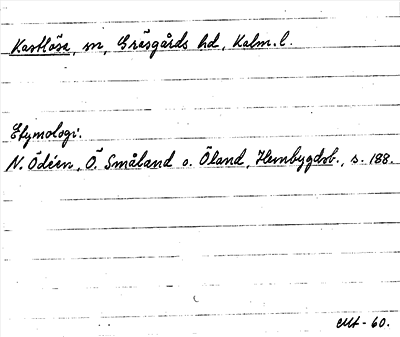 Kastlösa, sn, Gräsgårds hd, Kalm. l.
Etymologi:
N. Ödéen, Ö. Småland o. Öland, Hembygdsb., s. 188.
-60.